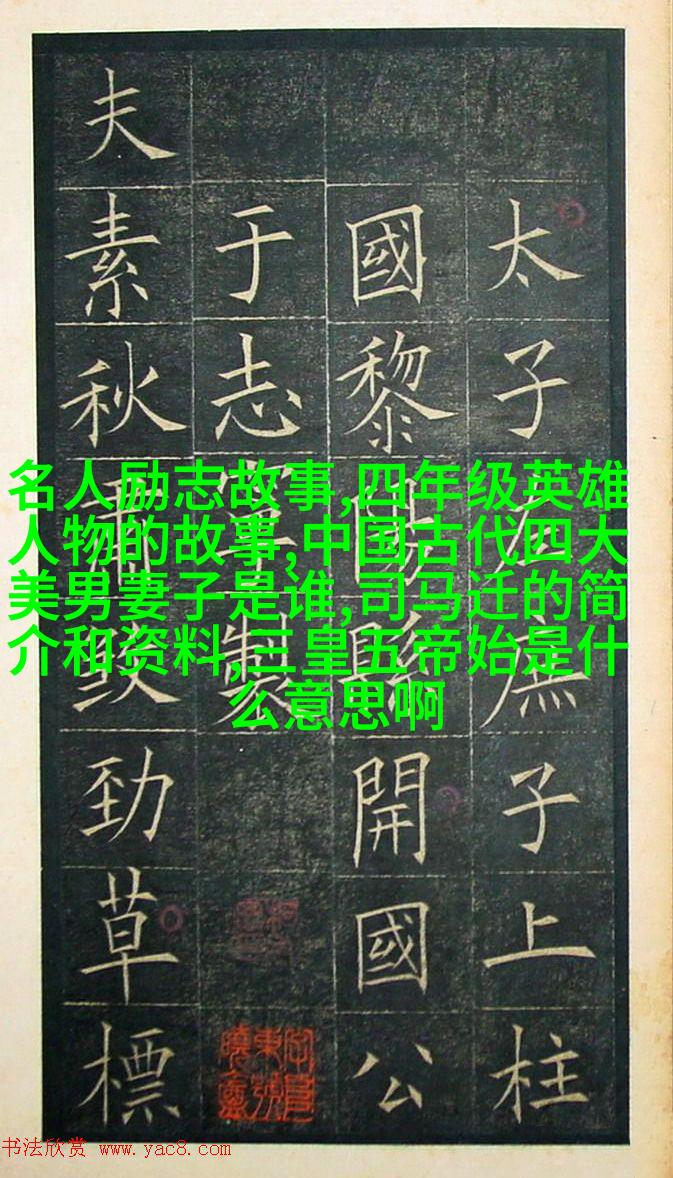 太子左庶子上柱
國黎陽縣開國公
于志寧製
夫素秋肅煞勁草標
名人励志故事,四年级英雄
人物的故事,中国古代四大
美男妻子是谁,司马迁的简
介和资料,三皇五帝始是什
么意思啊
书法欣赏 www.yac8.com